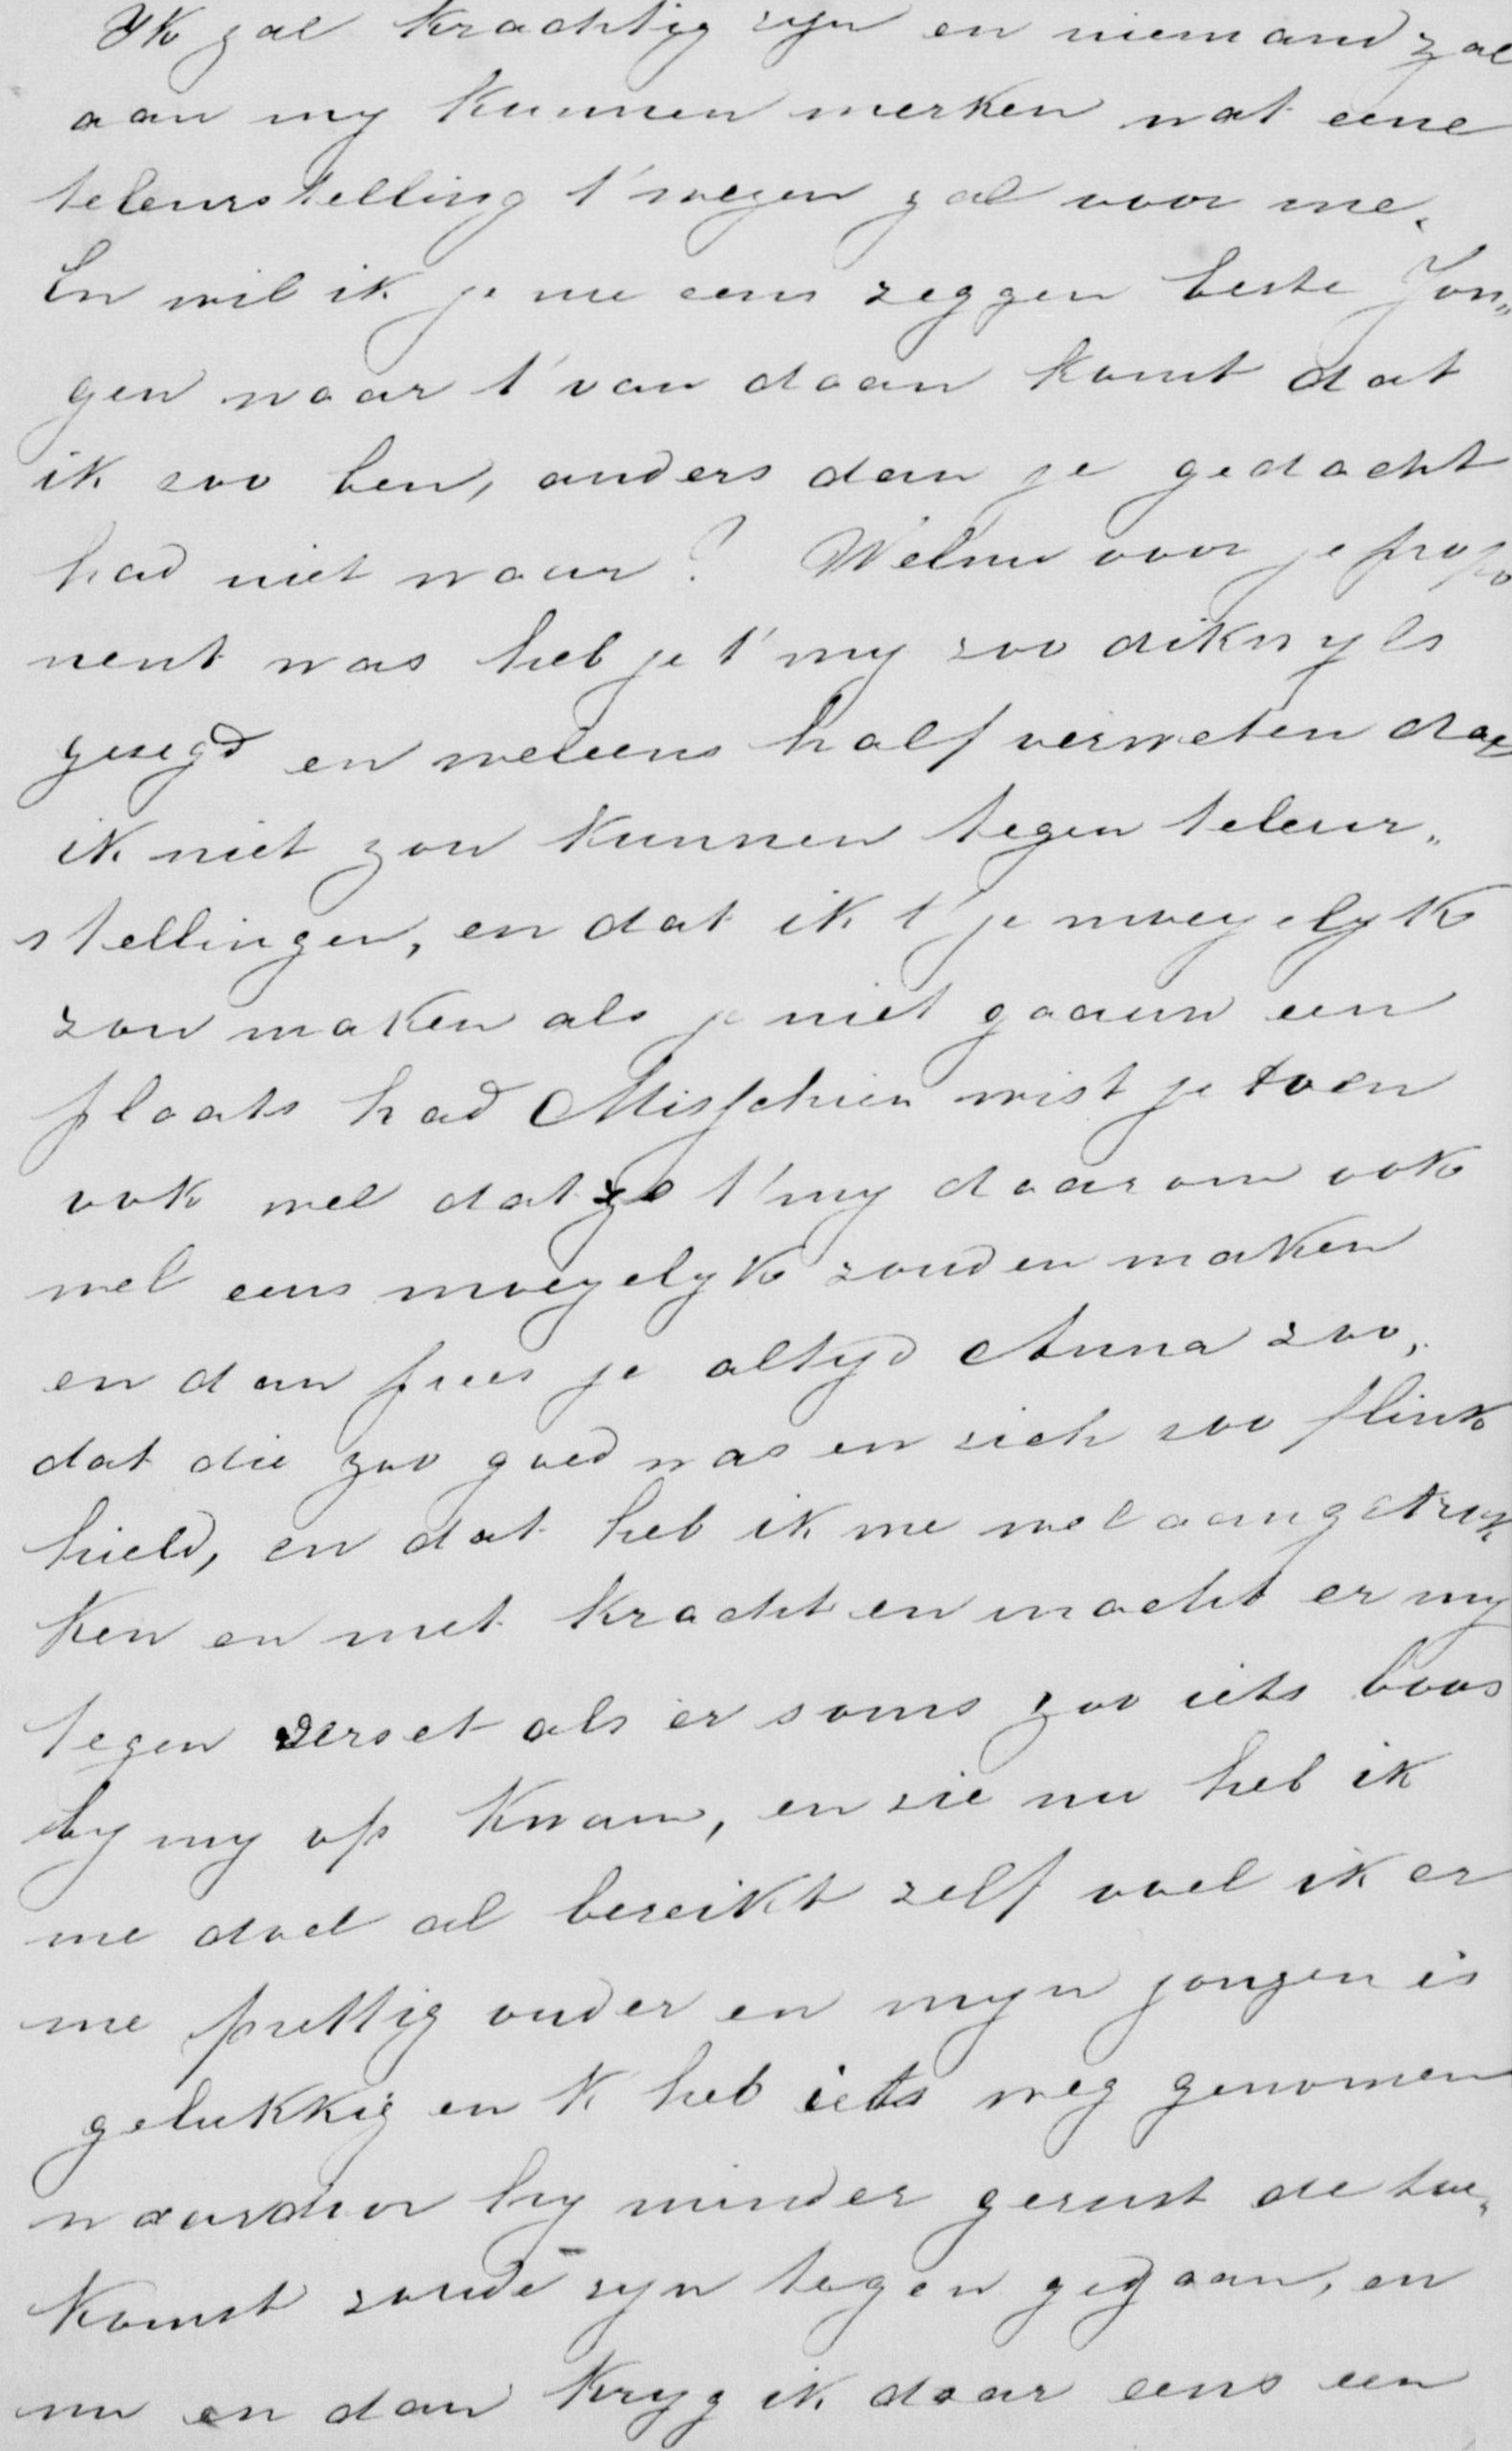 Ik zal krachtig zyn en niemand zal
aan my kunnen merken wat eene
teleurstelling t'wezen zal voor me.
En wil ik je nu eens zeggen beste Jon„
gen waar t'van daan komt dat
ik zoo ben, anders dan je gedacht
had niet waar? Welnu voor je propo
nent was heb je t'my zoo dikwyls
gezegd en weleens half verweten dat
ik niet zou kunnen tegen teleur„
stellingen, en dat ik t'je moeyelyk
zou maken als je niet gaauw een
plaats had Misschien wist je toen
ook wel dat ze t'my daarom ook
wel eens moeyelyk zouden maken
en dan prees je altyd Anna zoo,
dat die zoo goed was en zich zoo flink
hield, en dat heb ik me wel aangetrok„
ken en met kracht en macht er my
tegen verzet als er soms zoo iets boos
by my op kwam, en zie nu heb ik
me doel al bereikt zelf voel ik er
me prettig onder en myn jongen is
gelukkig en k heb iets weg genomen
waardoor hy minder gerust de toe„
komst zoude zyn tegen gegaan, en
nu en dan kryg ik daar eens een